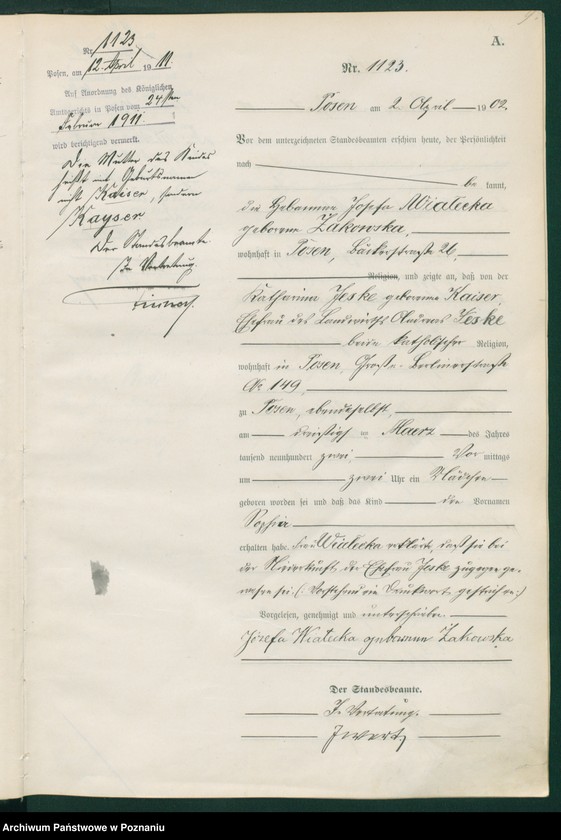 Nr. 1123
Posen, am 12. April 1911.
Auf Anordnung des Königlichen
Amtsgerichts in Posen vom 24ten
Februar 1911.
wird berichtigend vermerkt.
Die Mutter des Kindes
heißt mit Geburtsname
nicht Kaiser, sondern
Kayser
Der Standesbeamte
In Vertretung.
A.
Nr. 1123.
Posen am 2. April 1902.
Vor dem unterzeichneten Standesbeamten erschien heute, der Persönlichkeit
nach
be kannt,
die Hebamme Josefa Wialecka
geborene Zakowska,
wohnhaft in Posen, Bäckerstraße 26,
Religion, und zeigte an, daß von der
Katharina Jeske geborenen Kaiser,
Ehefrau des Landwirths Andreas Jeske
beide katholischer Religion,
wohnhaft in Posen, Große-Berlinerstraße
No 149,
zu Posen, ebendaselbst,
am dreißigsten Maerz des Jahres
tausend neunhundert zwei Vor mittags
um zwei Uhr ein Mädchen
geboren worden sei und daß das Kind den Vornamen
Sophia
erhalten habe. Frau Wialecka erklärt, daß sie bei
der Niederkunft der Ehefrau Jeske zugegen ge-
wesen sei. (: Vorstehend ein Druckwort gestrichen:)
Vorgelesen, genehmigt und unterschrieben
Józefa Wiatecka geborene Zakowska
Der Standesbeamte.
In Vertretung.
Archiwum Państwowe w Poznaniu